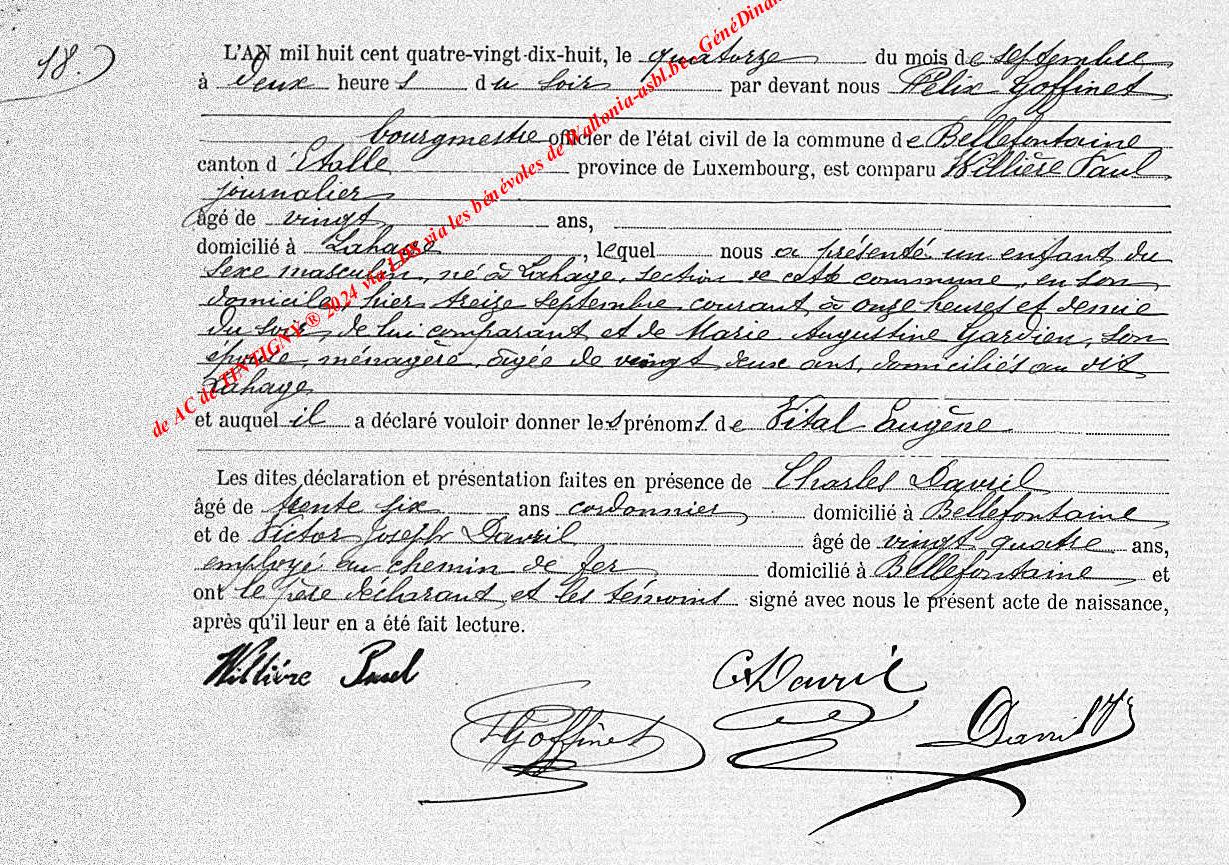 18.
L'AN mil huit cent quatre-vingt-dix-huit, le quatorze du mois de septembre
à deux heures du soir par devant nous Félix Goffinet
bourgmestre officier de l'état civil de la commune de Bellefontaine
canton d'Etalle province de Luxembourg, est comparu Willière Paul
journalier
âgé de vingt ans,
domicilié à Lahage, lequel nous a présenté un enfant du
sexe masculin, né à Lahage, section de cette commune, en son
domicile, hier treize septembre courant, à onze heures et demie
du soir, de lui comparant et de Marie Augustine Gardien, son
épouse, ménagère, âgée de vingt deux ans, domiciliés au dit
Lahage
et auquel il a déclaré vouloir donner les prénoms de Vital Eugène
Les dites déclaration et présentation faites en présence de Charles Davril
âgé de trente six ans cordonnier domicilié à Bellefontaine
et de Victor Joseph Davril âgé de vingt quatre ans,
employé au chemin de fer domicilié à Bellefontaine et
ont le père déclarant et les témoins signé avec nous le présent acte de naissance,
après qu'il leur en a été fait lecture.
Willière Paul
C Davril
F Goffinet
Davril
de AC de TINTIGNY ® 2024 via LDS via les bénévoles de Wallonia-asbl.be - GénéDinan